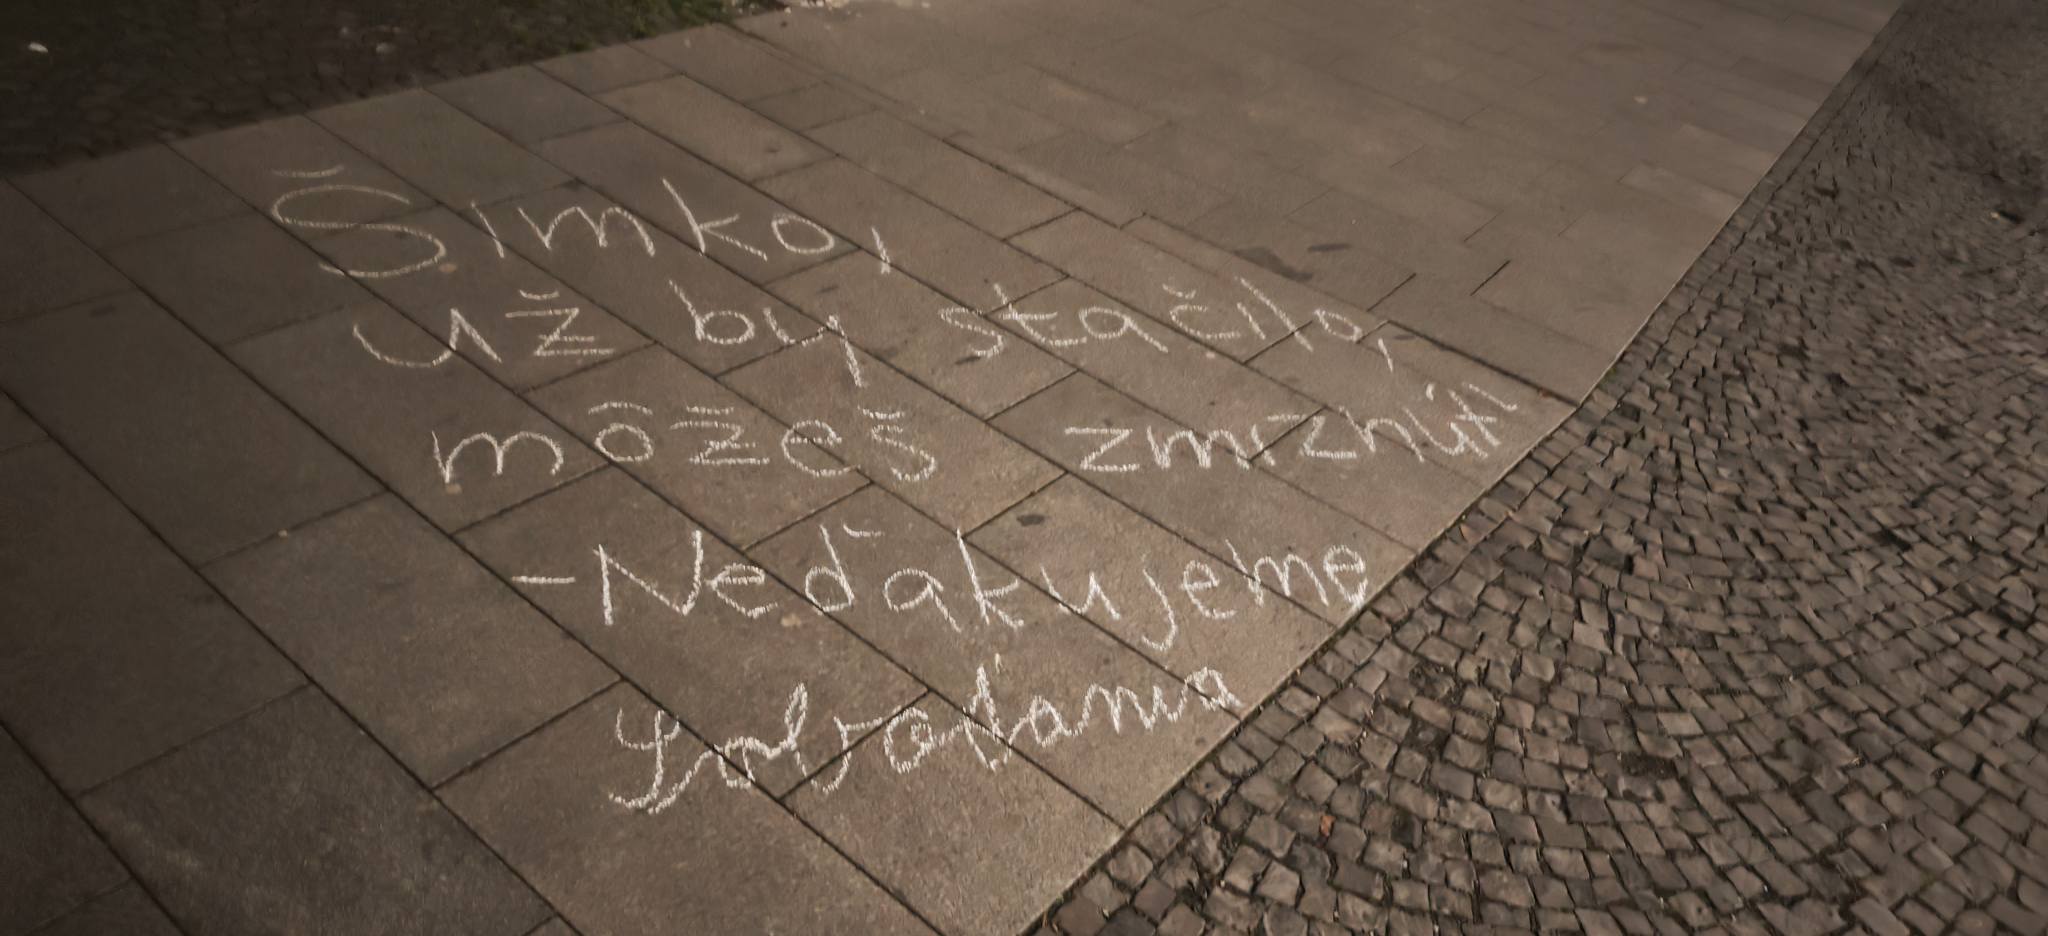 Šimko,
už by stačilo,
môžeš zmrznúť!
-Neďakujeme